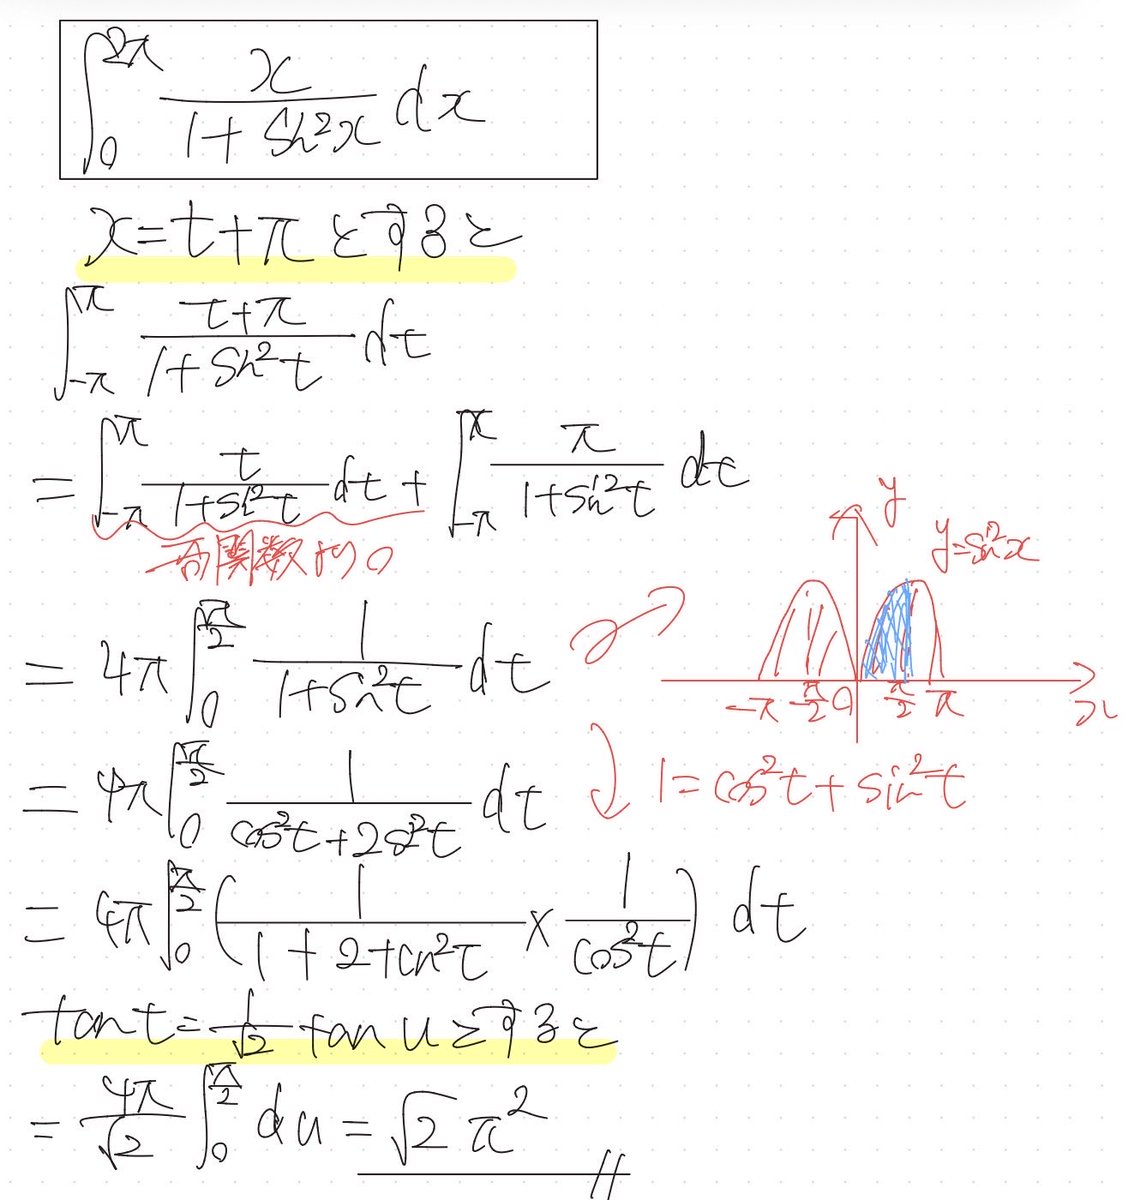 ∫₀^{2π} x/(1+sin²x) dx
x=t+πとすると
∫_{-π}^{π} (t+π)/(1+sin²t) dt
= ∫_{-π}^{π} t/(1+sin²t) dt + ∫_{-π}^{π} π/(1+sin²t) dt
奇関数より0
y
y=sin²x
-π -π/2 0 π/2 π
x
= 4π ∫₀^{π/2} 1/(1+sin²t) dt
= 4π ∫₀^{π/2} 1/(cos²t+2sin²t) dt
1=cos²t+sin²t
= 4π ∫₀^{π/2} (1/(1+2tan²t) × 1/cos²t) dt
tan t = 1/√2 tan u とすると
= 4π/√2 ∫₀^{π/2} du = √2 π² //